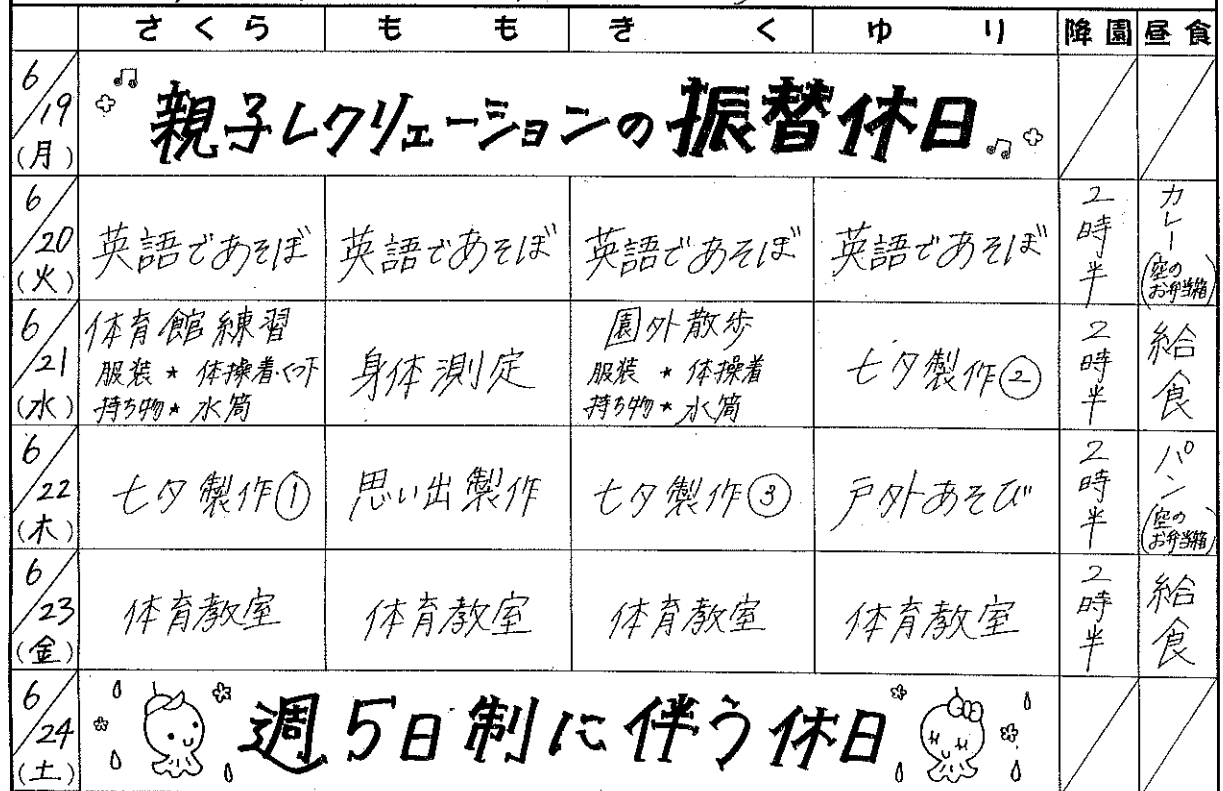 さくら もも きく ゆり 降園 昼食
6/19(月) 親子レクリェーションの振替休日
6/20(火) 英語であそぼ 英語であそぼ 英語であそぼ 英語であそぼ 2時半 カレー(空のお弁当箱)
6/21(水) 体育館練習
服装★体操着・くつ下
持ち物★水筒
身体測定
園外散歩
服装★体操着
持ち物★水筒
七夕製作②
2時半
給食
6/22(木) 七夕製作① 思い出製作 七夕製作③ 戸外あそび 2時半 パン(空のお弁当箱)
6/23(金) 体育教室 体育教室 体育教室 体育教室 2時半 給食
6/24(土) 週5日制に伴う休日